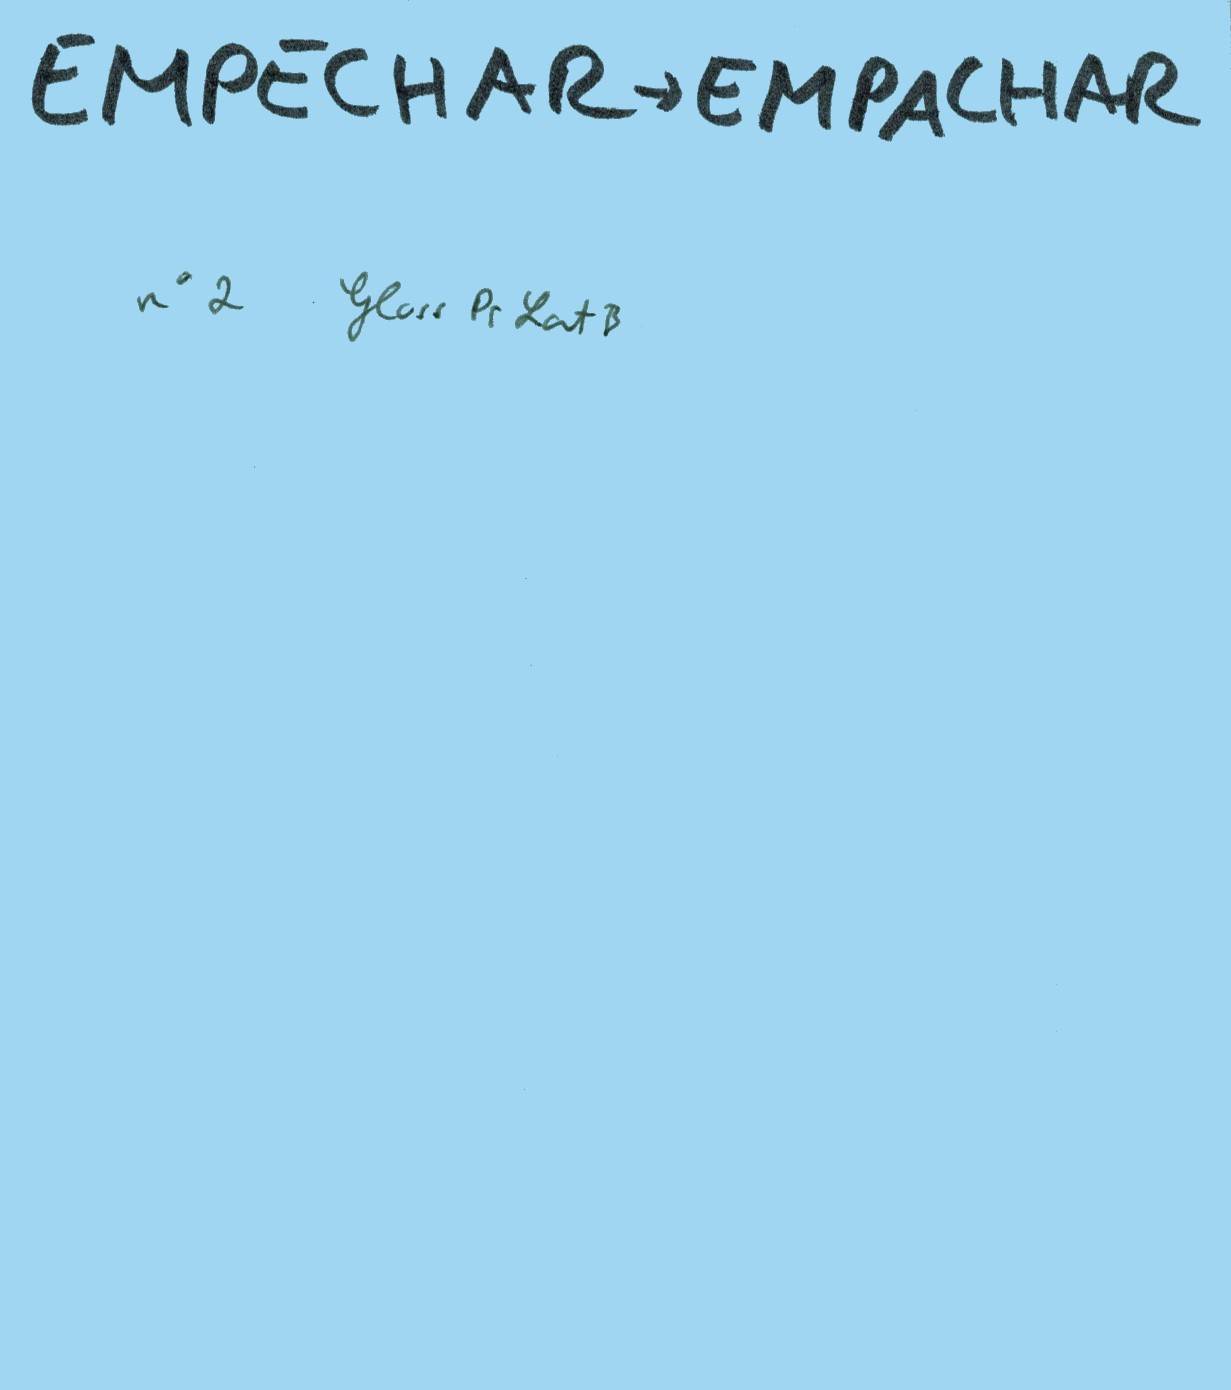 EMPECHAR → EMPACHAR
n° 2 Gloss Pr Lat B